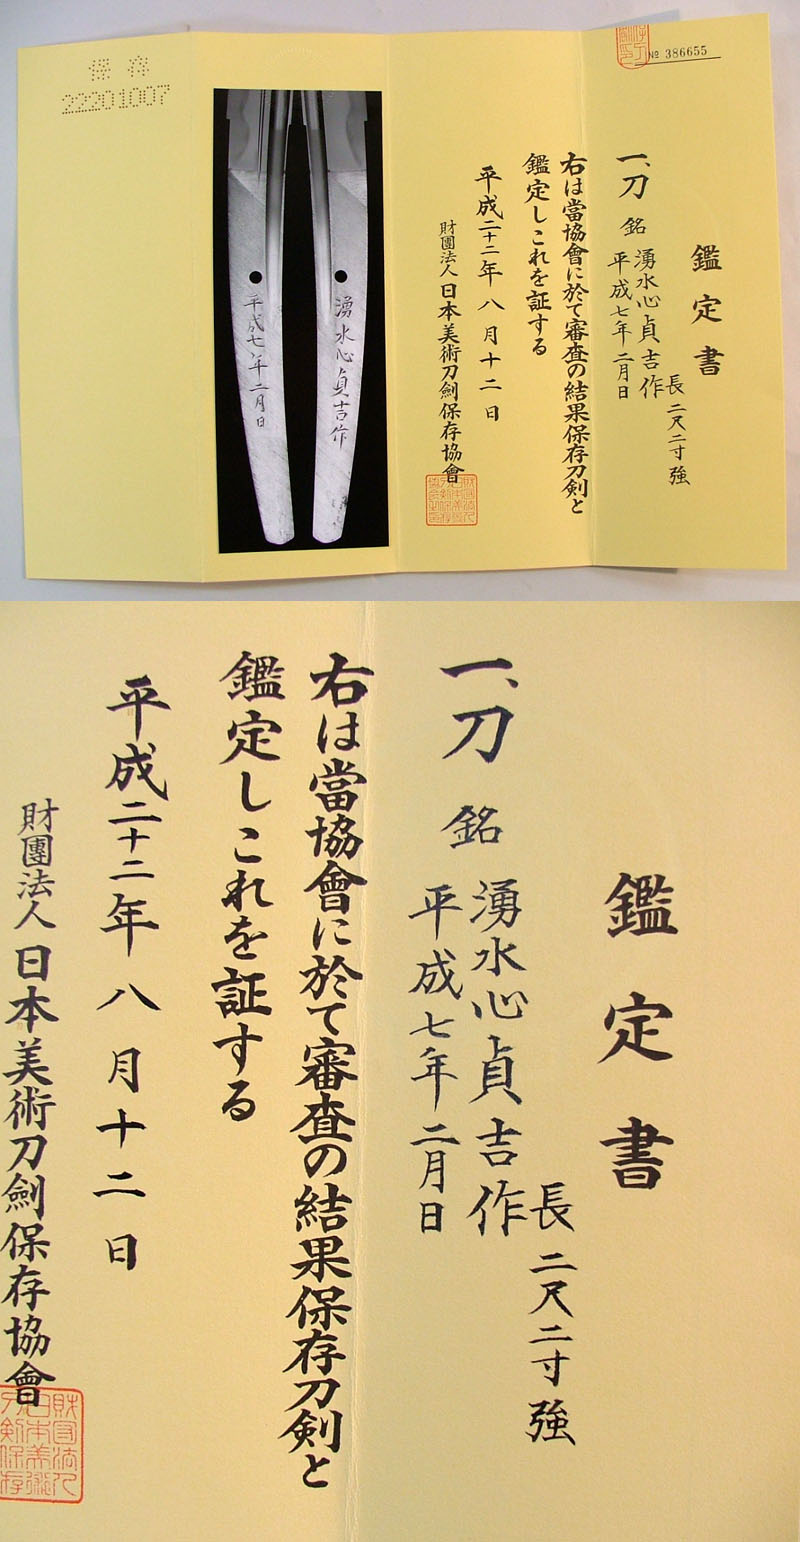 保存
22201007
平成七年二月日
湧水心貞吉作
№ 386655
鑑定書
長二尺二寸強
一、刀 銘 湧水心貞吉作
平成七年二月日
右は當協會に於て審査の結果保存刀剣と
鑑定しこれを証する
平成二十二年八月十二日
財團法人日本美術刀劍保存協會
鑑定書
長二尺二寸強
一、刀 銘 湧水心貞吉作
平成七年二月日
右は當協會に於て審査の結果保存刀剣と
鑑定しこれを証する
平成二十二年八月十二日
財團法人日本美術刀劍保存協會